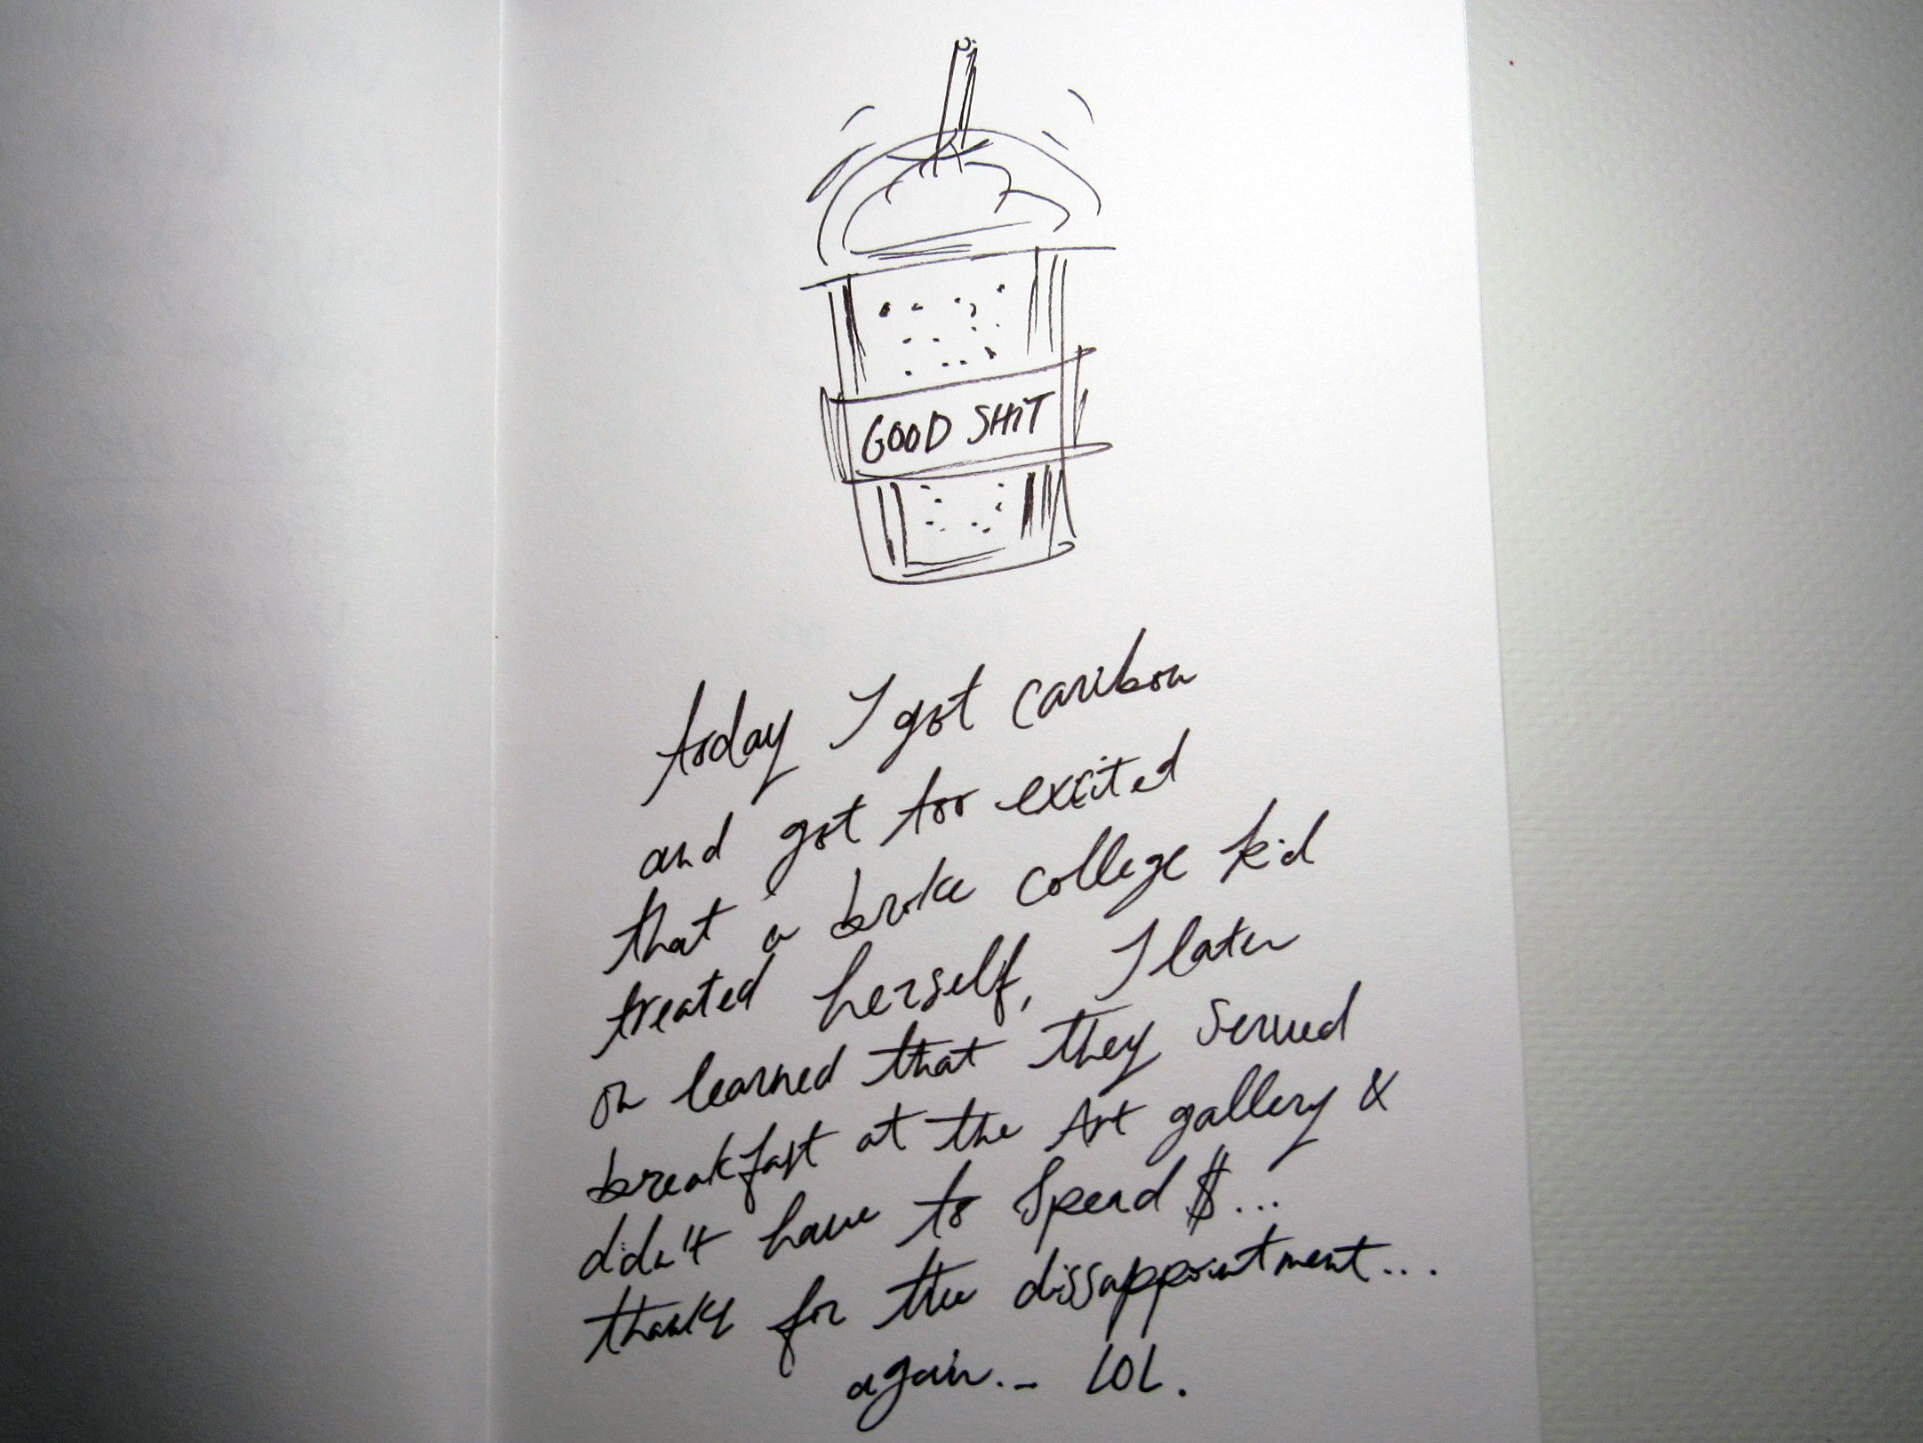 GOOD SHIT
today I got caribou
and got too excited
that a broke college kid
treated herself, I later
on learned that they served
breakfast at the Art gallery &
didn't have to spend $...
thanks for the dissappointment...
again... LOL.